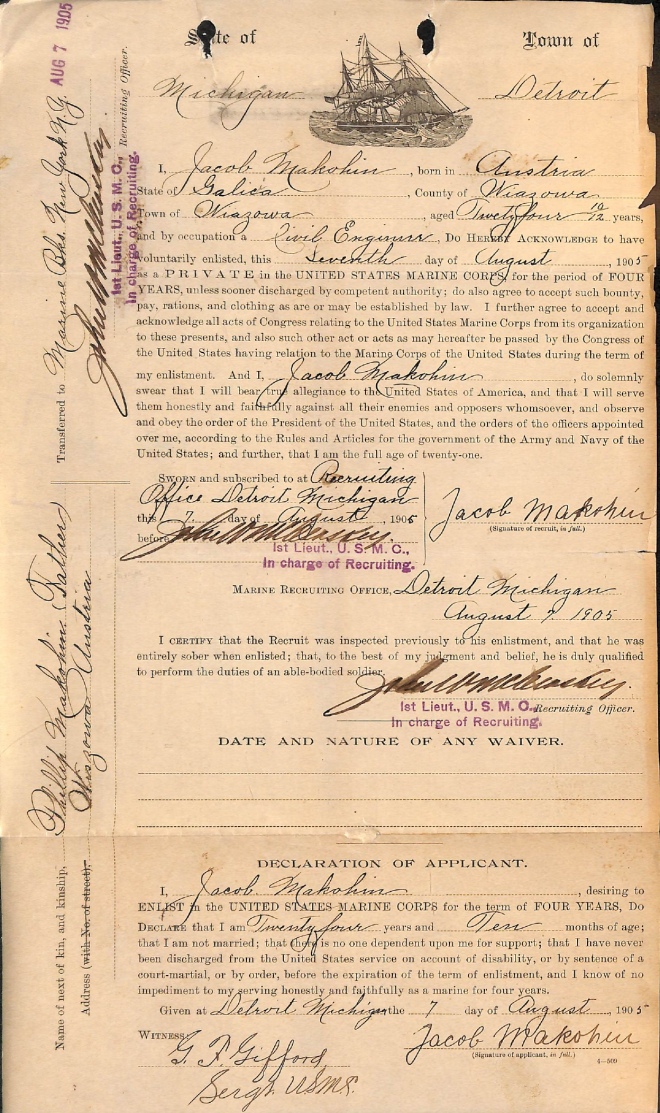 State of
Town of
Michigan
Detroit
I, Jacob Makohin, born in Austria
State of Galicia, County of Wiazowa
Town of Wiazowa, aged Twenty four 10/12 years,
and by occupation a Civil Engineer, DO HEREBY ACKNOWLEDGE to have
voluntarily enlisted, this Seventh day of August, 1905
as a PRIVATE in the UNITED STATES MARINE CORPS, for the period of FOUR
YEARS, unless sooner discharged by competent authority; do also agree to accept such bounty,
pay, rations, and clothing as are or may be established by law. I further agree to accept and
acknowledge all acts of Congress relating to the United States Marine Corps from its organization
to these presents, and also such other act or acts as may hereafter be passed by the Congress of
the United States having relation to the Marine Corps of the United States during the term of
my enlistment. And I, Jacob Makohin, do solemnly
swear that I will bear true allegiance to the United States of America, and that I will serve
them honestly and faithfully against all their enemies and opposers whomsoever, and observe
and obey the order of the President of the United States, and the orders of the officers appointed
over me, according to the Rules and Articles for the government of the Army and Navy of the
United States; and further, that I am the full age of twenty-one.
SWORN and subscribed to at Recruiting
Office Detroit Michigan
this 7. day of August, 1905
before
1st Lieut., U. S. M. C.,
In charge of Recruiting.
Jacob Makohin
(Signature of recruit, in full.)
MARINE RECRUITING OFFICE, Detroit Michigan
August 7, 1905
I CERTIFY that the Recruit was inspected previously to his enlistment, and that he was
entirely sober when enlisted; that, to the best of my judgment and belief, he is duly qualified
to perform the duties of an able-bodied soldier.
1st Lieut., U. S. M. C., Recruiting Officer.
In charge of Recruiting.
DATE AND NATURE OF ANY WAIVER.
DECLARATION OF APPLICANT.
I, Jacob Makohin, desiring to
ENLIST in the UNITED STATES MARINE CORPS for the term of FOUR YEARS, DO
DECLARE that I am Twenty four years and Ten months of age;
that I am not married; that there is no one dependent upon me for support; that I have never
been discharged from the United States service on account of disability, or by sentence of a
court-martial, or by order, before the expiration of the term of enlistment, and I know of no
impediment to my serving honestly and faithfully as a marine for four years.
Given at Detroit Michigan the 7 day of August, 1905
WITNESS:
G. F. Gifford
Sergt. USMC.
Jacob Makohin
(Signature of applicant, in full.)
4—509
Transferred to Marine Bks. New York N.Y. AUG 7 1905
Recruiting Officer.
1st Lieut., U. S. M. C.,
In charge of Recruiting.
Name of next of kin, and kinship, Phillip Makohin (Father)
Address (with No. of street), Wiazowa Austria